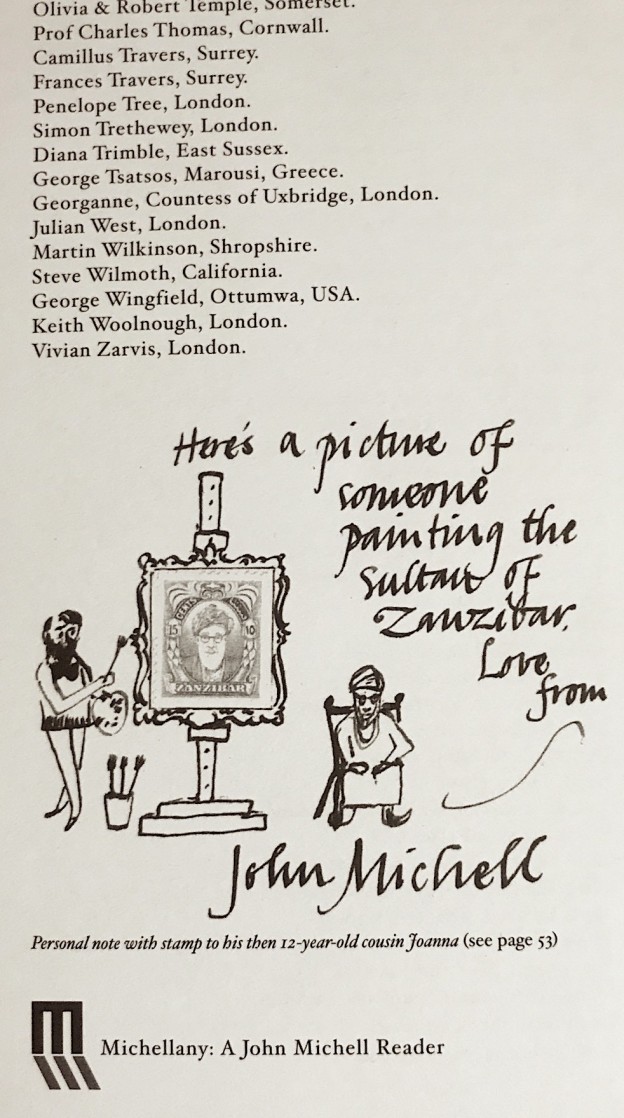 Olivia & Robert Temple, Somerset.
Prof Charles Thomas, Cornwall.
Camillus Travers, Surrey.
Frances Travers, Surrey.
Penelope Tree, London.
Simon Trethewey, London.
Diana Trimble, East Sussex.
George Tsatsos, Marousi, Greece.
Georganne, Countess of Uxbridge, London.
Julian West, London.
Martin Wilkinson, Shropshire.
Steve Wilmoth, California.
George Wingfield, Ottumwa, USA.
Keith Woolnough, London.
Vivian Zarvis, London.
Here's a picture of
someone
painting the
Sultan of
Zanzibar.
Love
from
ZANZIBAR
John Michell
Personal note with stamp to his then 12-year-old cousin Joanna (see page 53)
Michellany: A John Michell Reader